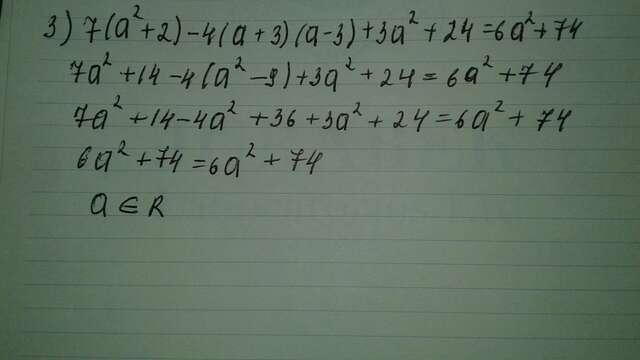 3) 7(a²+2)-4(a+3)(a-3)+3a²+24=6a²+74
7a²+14-4(a²-9)+3a²+24=6a²+74
7a²+14-4a²+36+3a²+24=6a²+74
6a²+74=6a²+74
a∈R